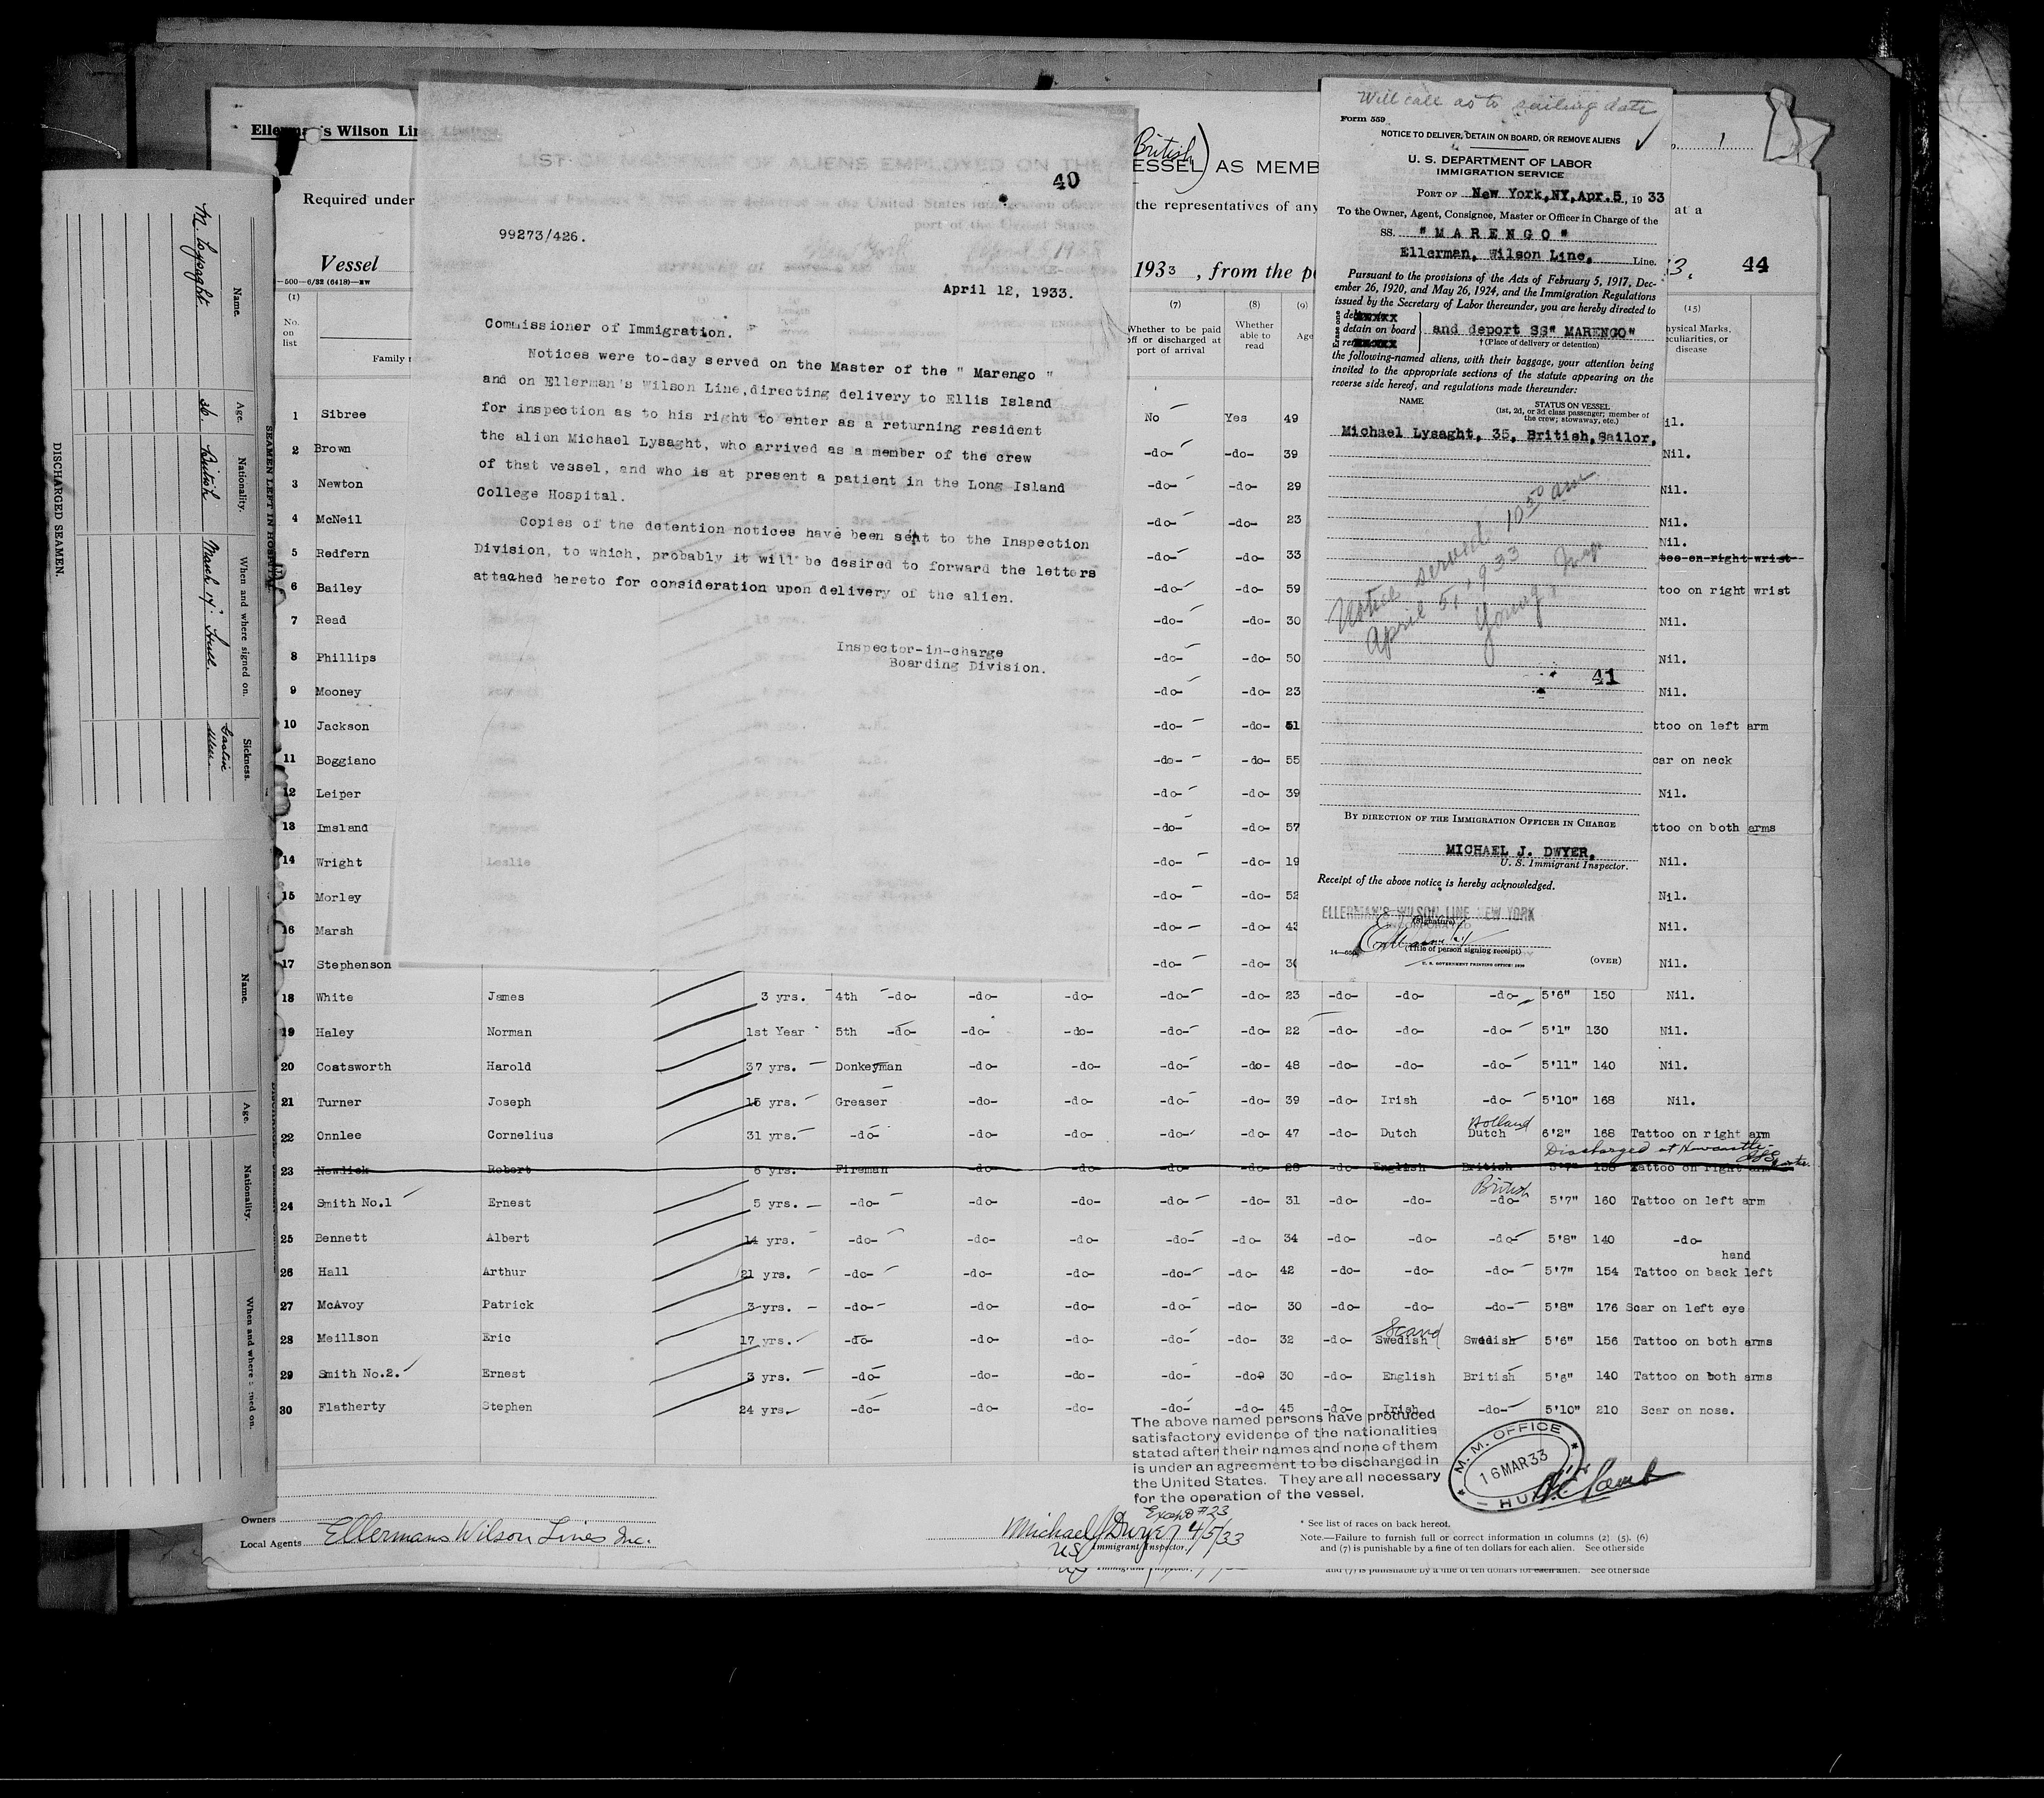 Ellerman's Wilson Lin
Required under
Vessel
—500—6/32 (6418)—BW
(1)
No.
on
list
Family
40
99273/426.
April 12, 1933.
Commissioner of Immigration.
Notices were to-day served on the Master of the " Marengo "
and on Ellerman's Wilson Line,directing delivery to Ellis Island
for inspection as to his right to enter as a returning resident
the alien Michael Lysaght, who arrived as a member of the crew
of that vessel, and who is at present a patient in the Long Island
College Hospital.
Copies of the detention notices have been sent to the Inspection
Division, to which, probably it will be desired to forward the letters
attached hereto for consideration upon delivery of the alien.
Inspector-in-charge
Boarding Division.
LIST OR MANIFEST OF ALIENS EMPLOYED ON THE
port of the United States
New York
British
ESSEL) AS MEMB
the representatives of any
1933 , from the p
(7)
Whether to be paid
off or discharged at
port of arrival
(8)
Whether
able to
read
(9)
Age
Will call as to sailing date
Form 559
NOTICE TO DELIVER, DETAIN ON BOARD, OR REMOVE ALIENS
U. S. DEPARTMENT OF LABOR
IMMIGRATION SERVICE
PORT OF New York,NY,Apr.5, 1933
To the Owner, Agent, Consignee, Master or Officer in Charge of the
SS. "MARENGO"
Ellerman, Wilson Line, Line.
Pursuant to the provisions of the Acts of February 5, 1917, Dec-
ember 26, 1920, and May 26, 1924, and the Immigration Regulations
issued by the Secretary of Labor thereunder, you are hereby directed to
Erase one
detain on board } and deport SS" MARENGO"
† (Place of delivery or detention)
the following-named aliens, with their baggage, your attention being
invited to the appropriate sections of the statute appearing on the
reverse side hereof, and regulations made thereunder:
NAME STATUS ON VESSEL
(1st, 2d, or 3d class passenger; member of
the crew; stowaway, etc.)
Michael Lysaght, 35, British,Sailor,
Notice served 10 50 am
April 5, 1933
Young, Mgr
41
BY DIRECTION OF THE IMMIGRATION OFFICER IN CHARGE
MICHAEL J. DWYER,
U. S. Immigrant Inspector.
Receipt of the above notice is hereby acknowledged.
ELLERMAN'S WILSON LINE NEW YORK
INCORPORATED
(Signature)
(Title of person signing receipt)
U. S. GOVERNMENT PRINTING OFFICE: 1930
(OVER)
1
at a
3, 44
(15)
hysical Marks,
eculiarities, or
disease
1 Sibree No Yes 49 il.
2 Brown -do- -do- 39 Nil.
3 Newton -do- -do- 29 Nil.
4 McNeil -do- -do- 23 Nil.
Nil.
5 Redfern -do- -do- 33 too on right wrist
6 Bailey -do- -do- 59 too on right wrist
7 Read -do- -do- 30 Nil.
8 Phillips -do- -do- 50 Nil.
9 Mooney -do- -do- 23 Nil.
10 Jackson -do- -do- 51 ttoo on left arm
11 Boggiano -do- -do- 55 car on neck
12 Leiper -do- -do- 39 Nil.
13 Imsland -do- -do- 57 ttoo on both arms
14 Wright Leslie -do- -do- 19 Nil.
15 Morley -do- -do- 52 Nil.
16 Marsh -do- -do- 43 Nil.
17 Stephenson -do- -do- 30 Nil.
18 White James 3 yrs. 4th -do- -do- -do- -do- -do- 23 -do- -do- -do- 5'6" 150 Nil.
19 Haley Norman 1st Year 5th -do- -do- -do- -do- -do- 22 -do- -do- -do- 5'1" 130 Nil.
20 Coatsworth Harold 37 yrs. Donkeyman -do- -do- -do- -do- 48 -do- -do- -do- 5'11" 140 Nil.
21 Turner Joseph 15 yrs. Greaser -do- -do- -do- -do- 39 -do- Irish -do- 5'10" 168 Nil.
Holland
22 Onnlee Cornelius 31 yrs. -do- -do- -do- -do- -do- 47 -do- Dutch Dutch 6'2" 168 Tattoo on right arm
Discharged at Newcastle
23 Newlick Robert 6 yrs. Fireman -do- -do- -do- -do- 28 -do- English British 5'7" 155 Tattoo on right arm
British
24 Smith No.1 Ernest 5 yrs. -do- -do- -do- -do- -do- 31 -do- -do- -do- 5'7" 160 Tattoo on left arm
25 Bennett Albert 14 yrs. -do- -do- -do- -do- -do- 34 -do- -do- -do- 5'8" 140 -do-
hand
26 Hall Arthur 21 yrs. -do- -do- -do- -do- -do- 42 -do- -do- -do- 5'7" 154 Tattoo on back left
27 McAvoy Patrick 3 yrs. -do- -do- -do- -do- -do- 30 -do- -do- -do- 5'8" 176 Scar on left eye
Scand
28 Meillson Eric 17 yrs. -do- -do- -do- -do- -do- 32 -do- Swedish Swedish 5'6" 156 Tattoo on both arms
29 Smith No.2. Ernest 3 yrs. -do- -do- -do- -do- -do- 30 -do- English British 5'6" 140 Tattoo on both arms
30 Flatherty Stephen 24 yrs. -do- -do- -do- -do- -do- 45 -do- Irish -do- 5'10" 210 Scar on nose.
The above named persons have produced
satisfactory evidence of the nationalities
stated after their names and none of them
is under an agreement to be discharged in
the United States. They are all necessary
for the operation of the vessel.
Except #23
M. M. OFFICE
16 MAR 33
HULL
Owners
Local Agents Ellermans Wilson Lines Inc.
Michael J Dwyer 4/5/33
US Immigrant Inspector.
* See list of races on back hereof.
Note.—Failure to furnish full or correct information in columns (2) (5), (6)
and (7) is punishable by a fine of ten dollars for each alien. See other side
and (7) is punishable by a fine of ten dollars for each alien. See other side
SEAMEN LEFT IN HOSPITAL
Name. Age. Nationality. When and where signed on. Sickness.
M Lysaght 36. British March 17. Hull. Gastric Ulcer
DISCHARGED SEAMEN.
Name. Age. Nationality. When and where signed on.